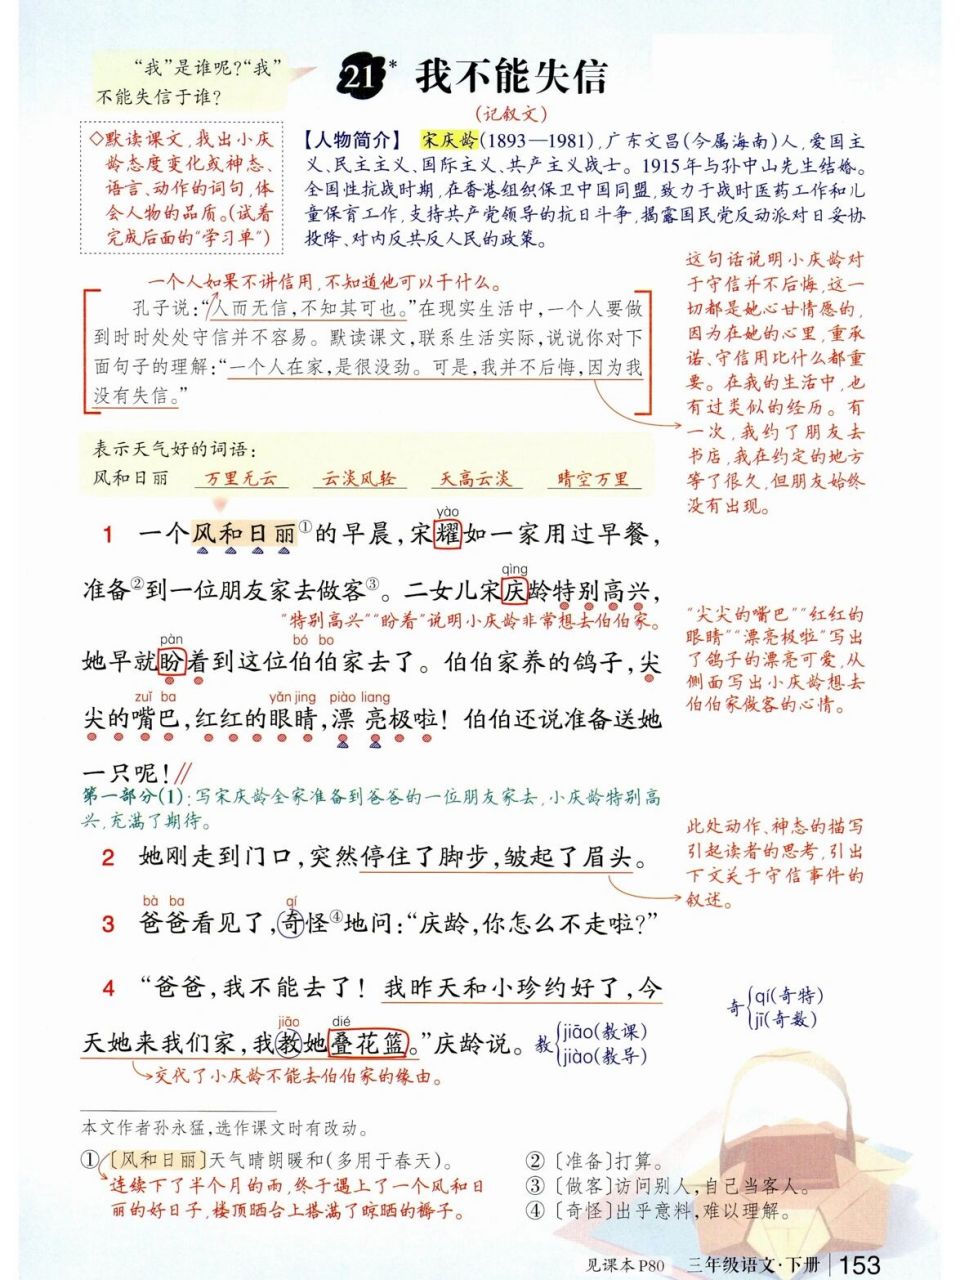 “我”是谁呢?“我”
不能失信于谁?
21* 我不能失信
(记叙文)
◇默读课文,找出小庆
龄态度变化或神态、
语言、动作的词句,体
会人物的品质。(试着
完成后面的“学习单”)
【人物简介】 宋庆龄(1893—1981),广东文昌(今属海南)人,爱国主
义、民主主义、国际主义、共产主义战士。1915年与孙中山先生结婚。
全国性抗战时期,在香港组织保卫中国同盟,致力于战时医药工作和儿
童保育工作,支持共产党领导的抗日斗争,揭露国民党反动派对日妥协
投降、对内反共反人民的政策。
一个人如果不讲信用,不知道他可以干什么。
孔子说:“人而无信,不知其可也。”在现实生活中,一个人要做
到时时处处守信并不容易。默读课文,联系生活实际,说说你对下
面句子的理解:“一个人在家,是很没劲。可是,我并不后悔,因为我
没有失信。”
这句话说明小庆龄对
于守信并不后悔,这一
切都是她心甘情愿的,
因为在她的心里,重承
诺、守信用比什么都重
要。在我的生活中,也
有过类似的经历。有
一次,我约了朋友去
书店,我在约定的地方
等了很久,但朋友始终
没有出现。
表示天气好的词语:
风和日丽 万里无云 云淡风轻 天高云淡 晴空万里
yào
1 一个风和日丽①的早晨,宋耀如一家用过早餐,
qìng
准备②到一位朋友家去做客③。二女儿宋庆龄特别高兴,
“特别高兴”“盼着”说明小庆龄非常想去伯伯家。
pàn bó bo
她早就盼着到这位伯伯家去了。伯伯家养的鸽子,尖
zuǐ ba yǎn jing piào liang
尖的嘴巴,红红的眼睛,漂亮极啦!伯伯还说准备送她
一只呢!//
“尖尖的嘴巴”“红红的
眼睛”“漂亮极啦”写出
了鸽子的漂亮可爱,从
侧面写出小庆龄想去
伯伯家做客的心情。
第一部分(1):写宋庆龄全家准备到爸爸的一位朋友家去,小庆龄特别高
兴,充满了期待。
2 她刚走到门口,突然停住了脚步,皱起了眉头。
此处动作、神态的描写
引起读者的思考,引出
下文关于守信事件的
叙述。
bà ba qí
3 爸爸看见了,奇怪④地问:“庆龄,你怎么不走啦?”
4 “爸爸,我不能去了!我昨天和小珍约好了,今
jiāo dié
天她来我们家,我教她叠花篮。”庆龄说。
教{jiāo(教课)
jiào(教导)
奇{qí(奇特)
jī(奇数)
交代了小庆龄不能去伯伯家的缘由。
本文作者孙永猛,选作课文时有改动。
①〔风和日丽〕天气晴朗暖和(多用于春天)。
连续下了半个月的雨,终于遇上了一个风和日
丽的好日子,楼顶晒台上搭满了晾晒的褥子。
②〔准备〕打算。
③〔做客〕访问别人,自己当客人。
④〔奇怪〕出乎意料,难以理解。
见课本P80 三年级语文·下册 153